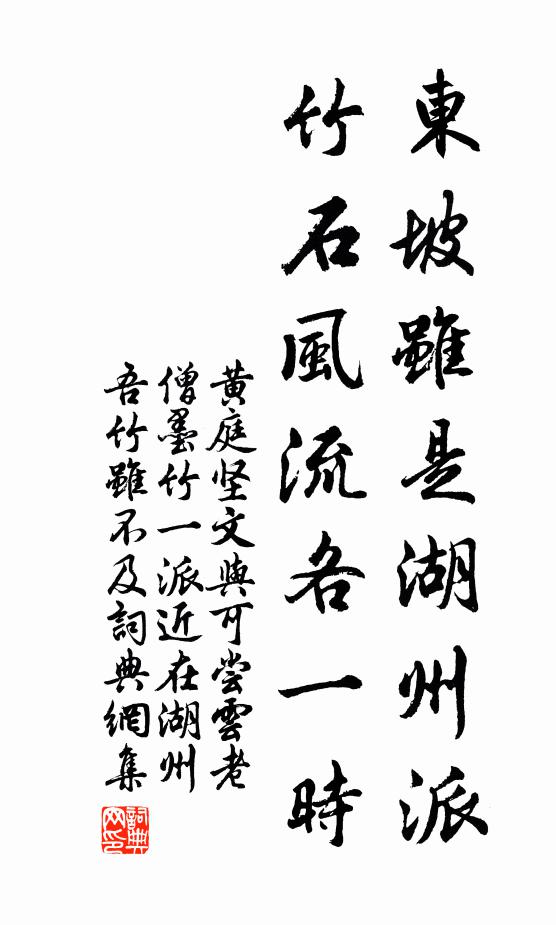 東坡雖是湖州派
竹石風流各一時
黄庭坚文與可尝雲老
僧墨竹一派近在湖州
吾竹雖不及詞典網集
詞典网印